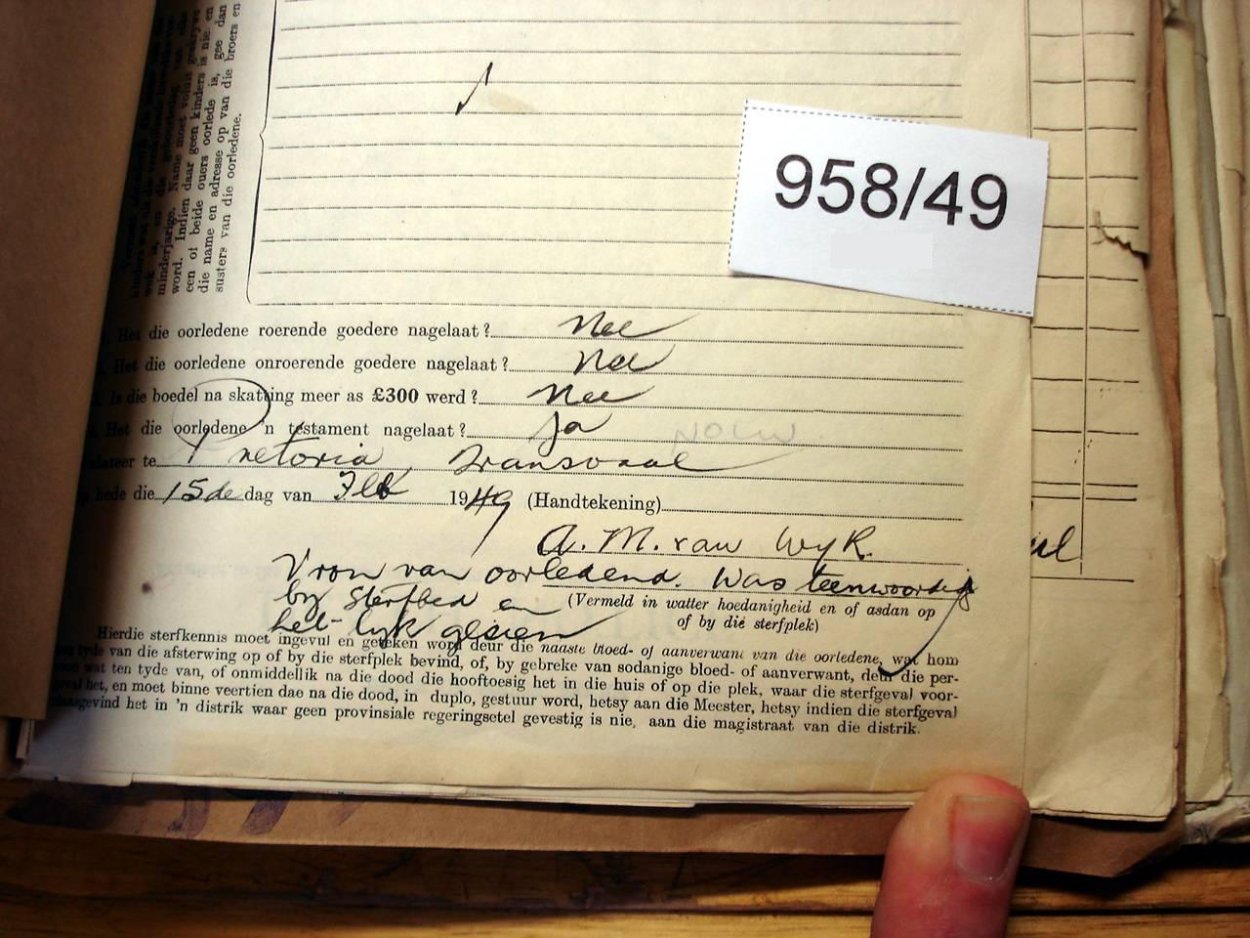 minderjarige. Name moet voluit geskrywe
word. Indien daar geen kinders is nie en
een of beide ouers oorlede is, gee dan
die name en adresse op van die broers en
susters van die oorledene.
958/49
Het die oorledene roerende goedere nagelaat? Nee
Het die oorledene onroerende goedere nagelaat? Nee
Is die boedel na skatting meer as £300 werd? Nee
Het die oorledene 'n testament nagelaat? Ja
NOUW
te Pretoria, Transvaal
hede die 15de dag van Feb 1949 (Handtekening)
A. M. van Wyk.
Vrou van oorledene. Was teenwoordig
by sterfbed en (Vermeld in watter hoedanigheid en of asdan op
het lyk gesien of by die sterfplek)
Hierdie sterfkennis moet ingevul en geteken word deur die naaste bloed- of aanverwant van die oorledene, wat hom
tyde van die afsterwing op of by die sterfplek bevind, of, by gebreke van sodanige bloed- of aanverwant, deur die per-
wat ten tyde van, of onmiddellik na die dood die hooftoesig het in die huis of op die plek, waar die sterfgeval voor-
het, en moet binne veertien dae na die dood, in duplo, gestuur word, hetsy aan die Meester, hetsy indien die sterfgeval
het in 'n distrik waar geen provinsiale regeringsetel gevestig is nie, aan die magistraat van die distrik.